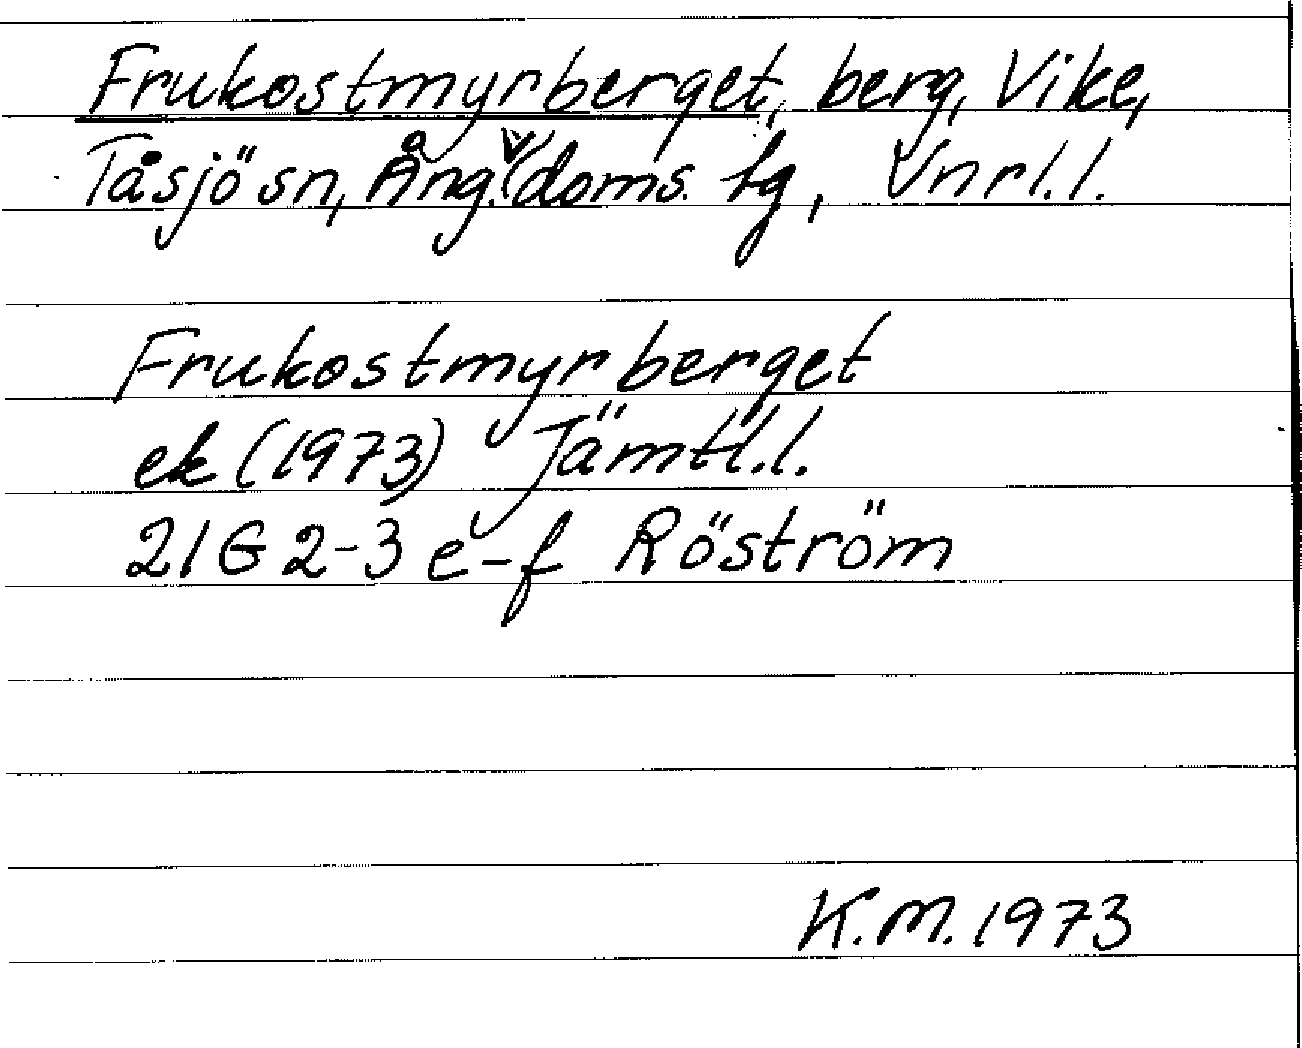 Frukostmyrberget, berg, Vike,
Tåsjö sn, Ång. v doms. lg, Vnrl. l.
Frukostmyrberget
ek (1973) Jämtl. l.
21G 2-3 e-f Röström
K.M. 1973